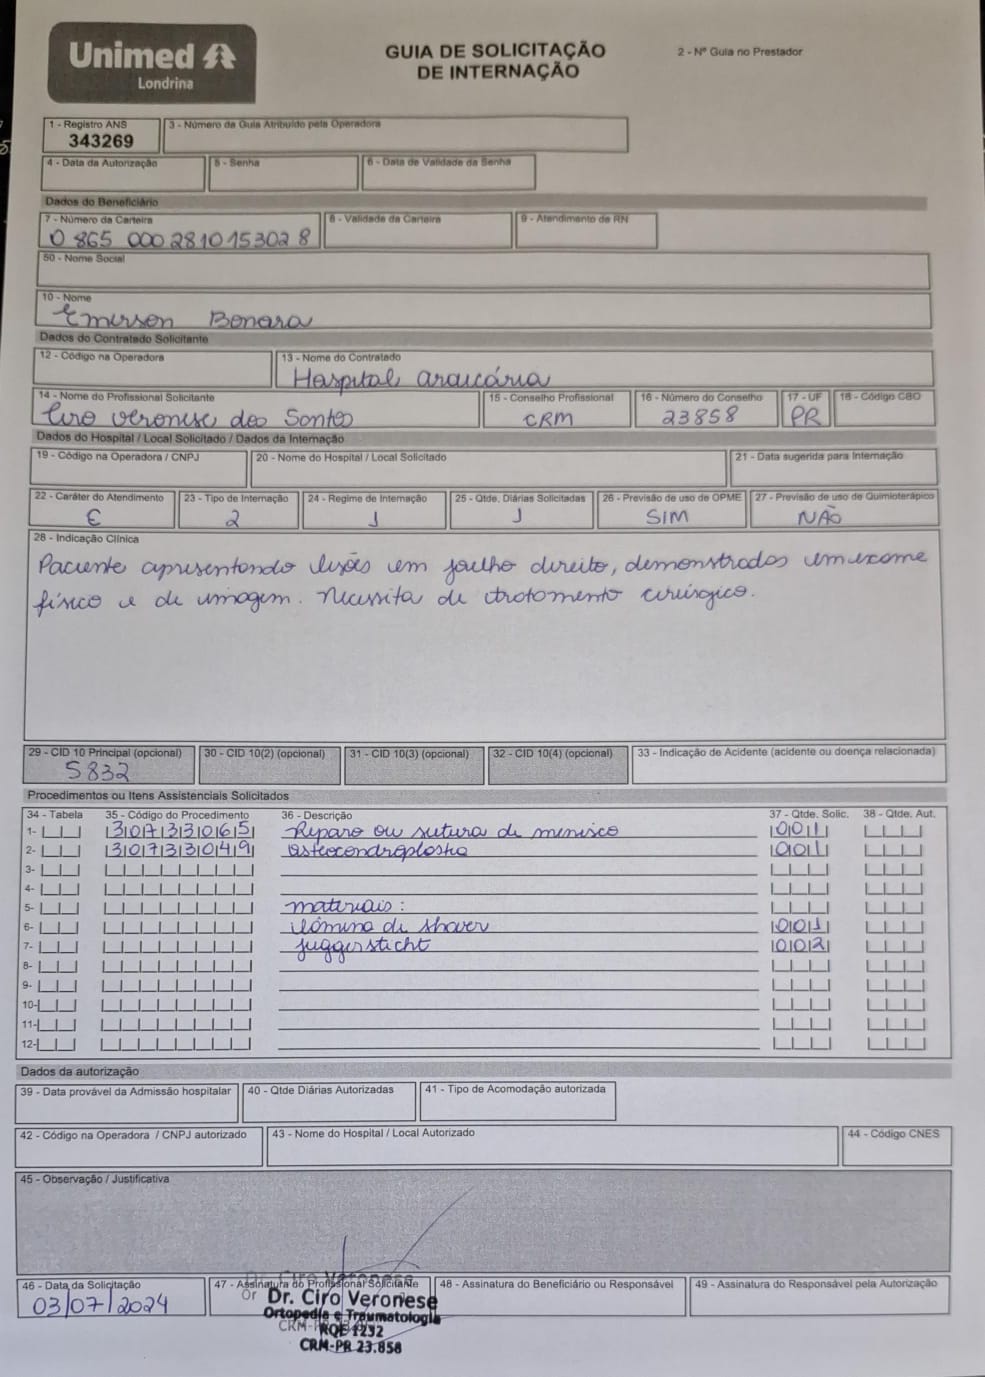 Unimed
Londrina
GUIA DE SOLICITAÇÃO
DE INTERNAÇÃO
2 - Nº Guia no Prestador
1 - Registro ANS
343269
3 - Número da Guia Atribuído pela Operadora
4 - Data da Autorização
5 - Senha
6 - Data de Validade da Senha
Dados do Beneficiário
7 - Número da Carteira
0 865 000 281015302 8
8 - Validade da Carteira
9 - Atendimento de RN
50 - Nome Social
10 - Nome
Emerson Bonara
Dados do Contratado Solicitante
12 - Código na Operadora
13 - Nome do Contratado
Hospital araucária
14 - Nome do Profissional Solicitante
Ciro Veronese dos Santos
15 - Conselho Profissional
CRM
16 - Número do Conselho
23858
17 - UF
PR
18 - Código CBO
Dados do Hospital / Local Solicitado / Dados da Internação
19 - Código na Operadora / CNPJ
20 - Nome do Hospital / Local Solicitado
21 - Data sugerida para Internação
22 - Caráter do Atendimento
E
23 - Tipo de Internação
2
24 - Regime de Internação
1
25 - Qtde. Diárias Solicitadas
1
26 - Previsão de uso de OPME
SIM
27 - Previsão de uso de Quimioterápico
NÃO
28 - Indicação Clínica
Paciente apresentando lesões em joelho direito, demonstrados em exame
físico e de imagem. Necessita de tratamento cirúrgico.
29 - CID 10 Principal (opcional)
S832
30 - CID 10(2) (opcional)
31 - CID 10(3) (opcional)
32 - CID 10(4) (opcional)
33 - Indicação de Acidente (acidente ou doença relacionada)
Procedimentos ou Itens Assistenciais Solicitados
34 - Tabela 35 - Código do Procedimento 36 - Descrição 37 - Qtde. Solic. 38 - Qtde. Aut.
1- 30733065 Reparo ou sutura de menisco 001
2- 30733049 Osteocondroplastia 001
3-
4-
5- materiais:
6- lâmina de shaver 001
7- juggersticht 002
8-
9-
10-
11-
12-
Dados da autorização
39 - Data provável da Admissão hospitalar
40 - Qtde Diárias Autorizadas
41 - Tipo de Acomodação autorizada
42 - Código na Operadora / CNPJ autorizado
43 - Nome do Hospital / Local Autorizado
44 - Código CNES
45 - Observação / Justificativa
46 - Data da Solicitação
03/07/2024
47 - Assinatura do Profissional Solicitante
Dr. Ciro Veronese
Ortopedia e Traumatologia
RQE 1232
CRM-PR 23.858
48 - Assinatura do Beneficiário ou Responsável
49 - Assinatura do Responsável pela Autorização